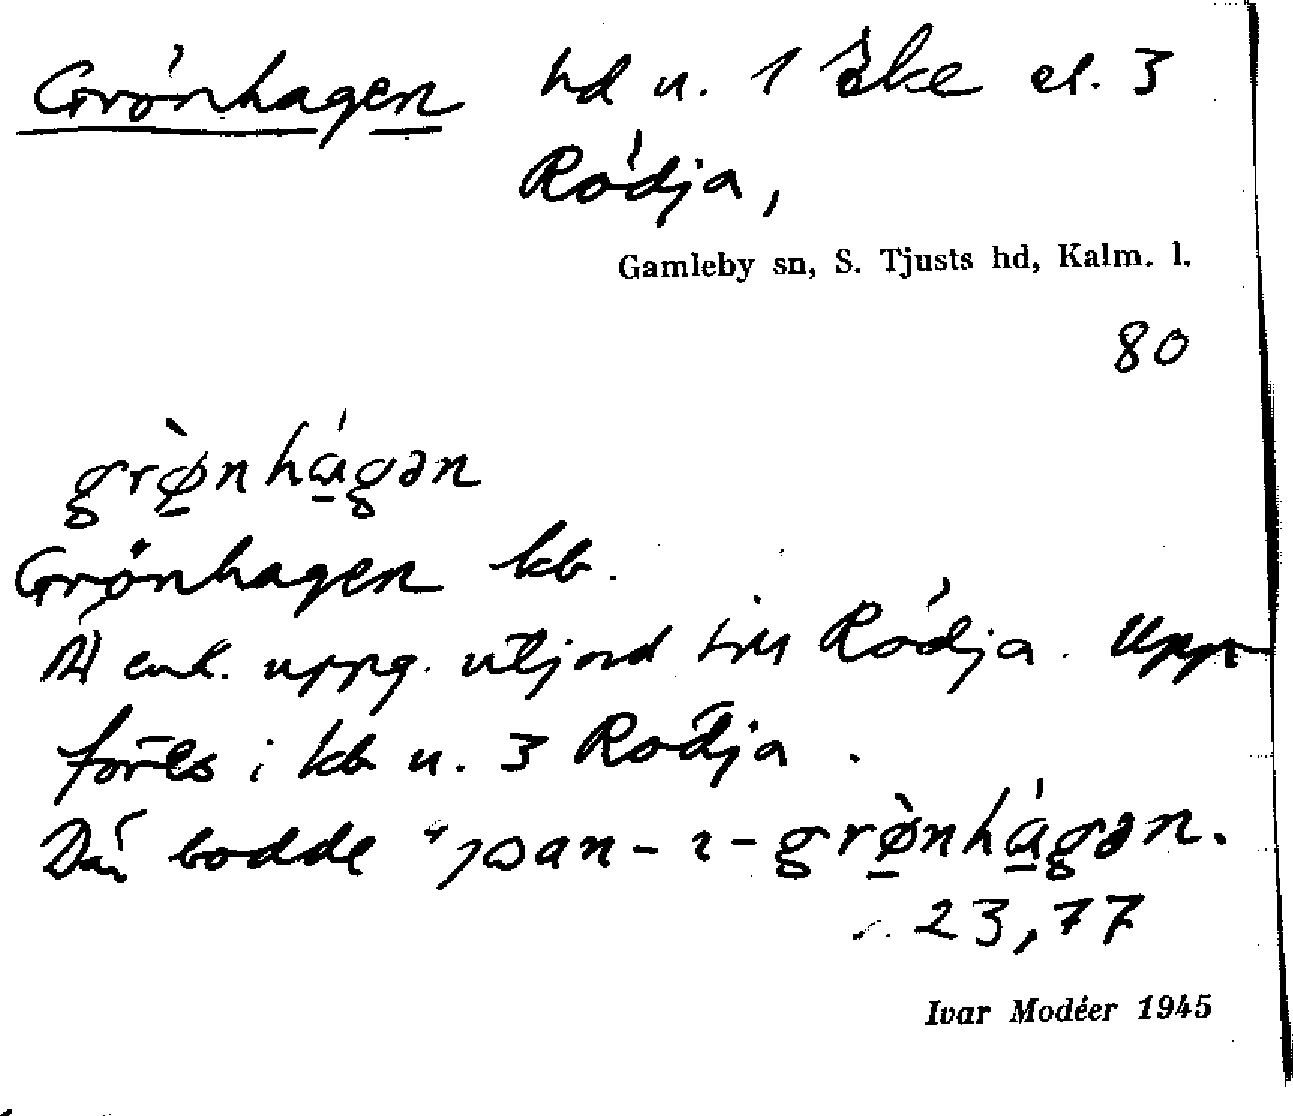 Grönhagen hd u. 1 Eke el. 3
Rödja,
Gamleby sn, S. Tjusts hd, Kalm. l.
80
grø̀nhágən
Grönhagen kb.
Al enl. uppg. utjord till Rödja. Upp-
föres i kb u. 3 Rödja.
Där bodde "joan-ı-grø̀nhágən.
23,77
Ivar Modéer 1945